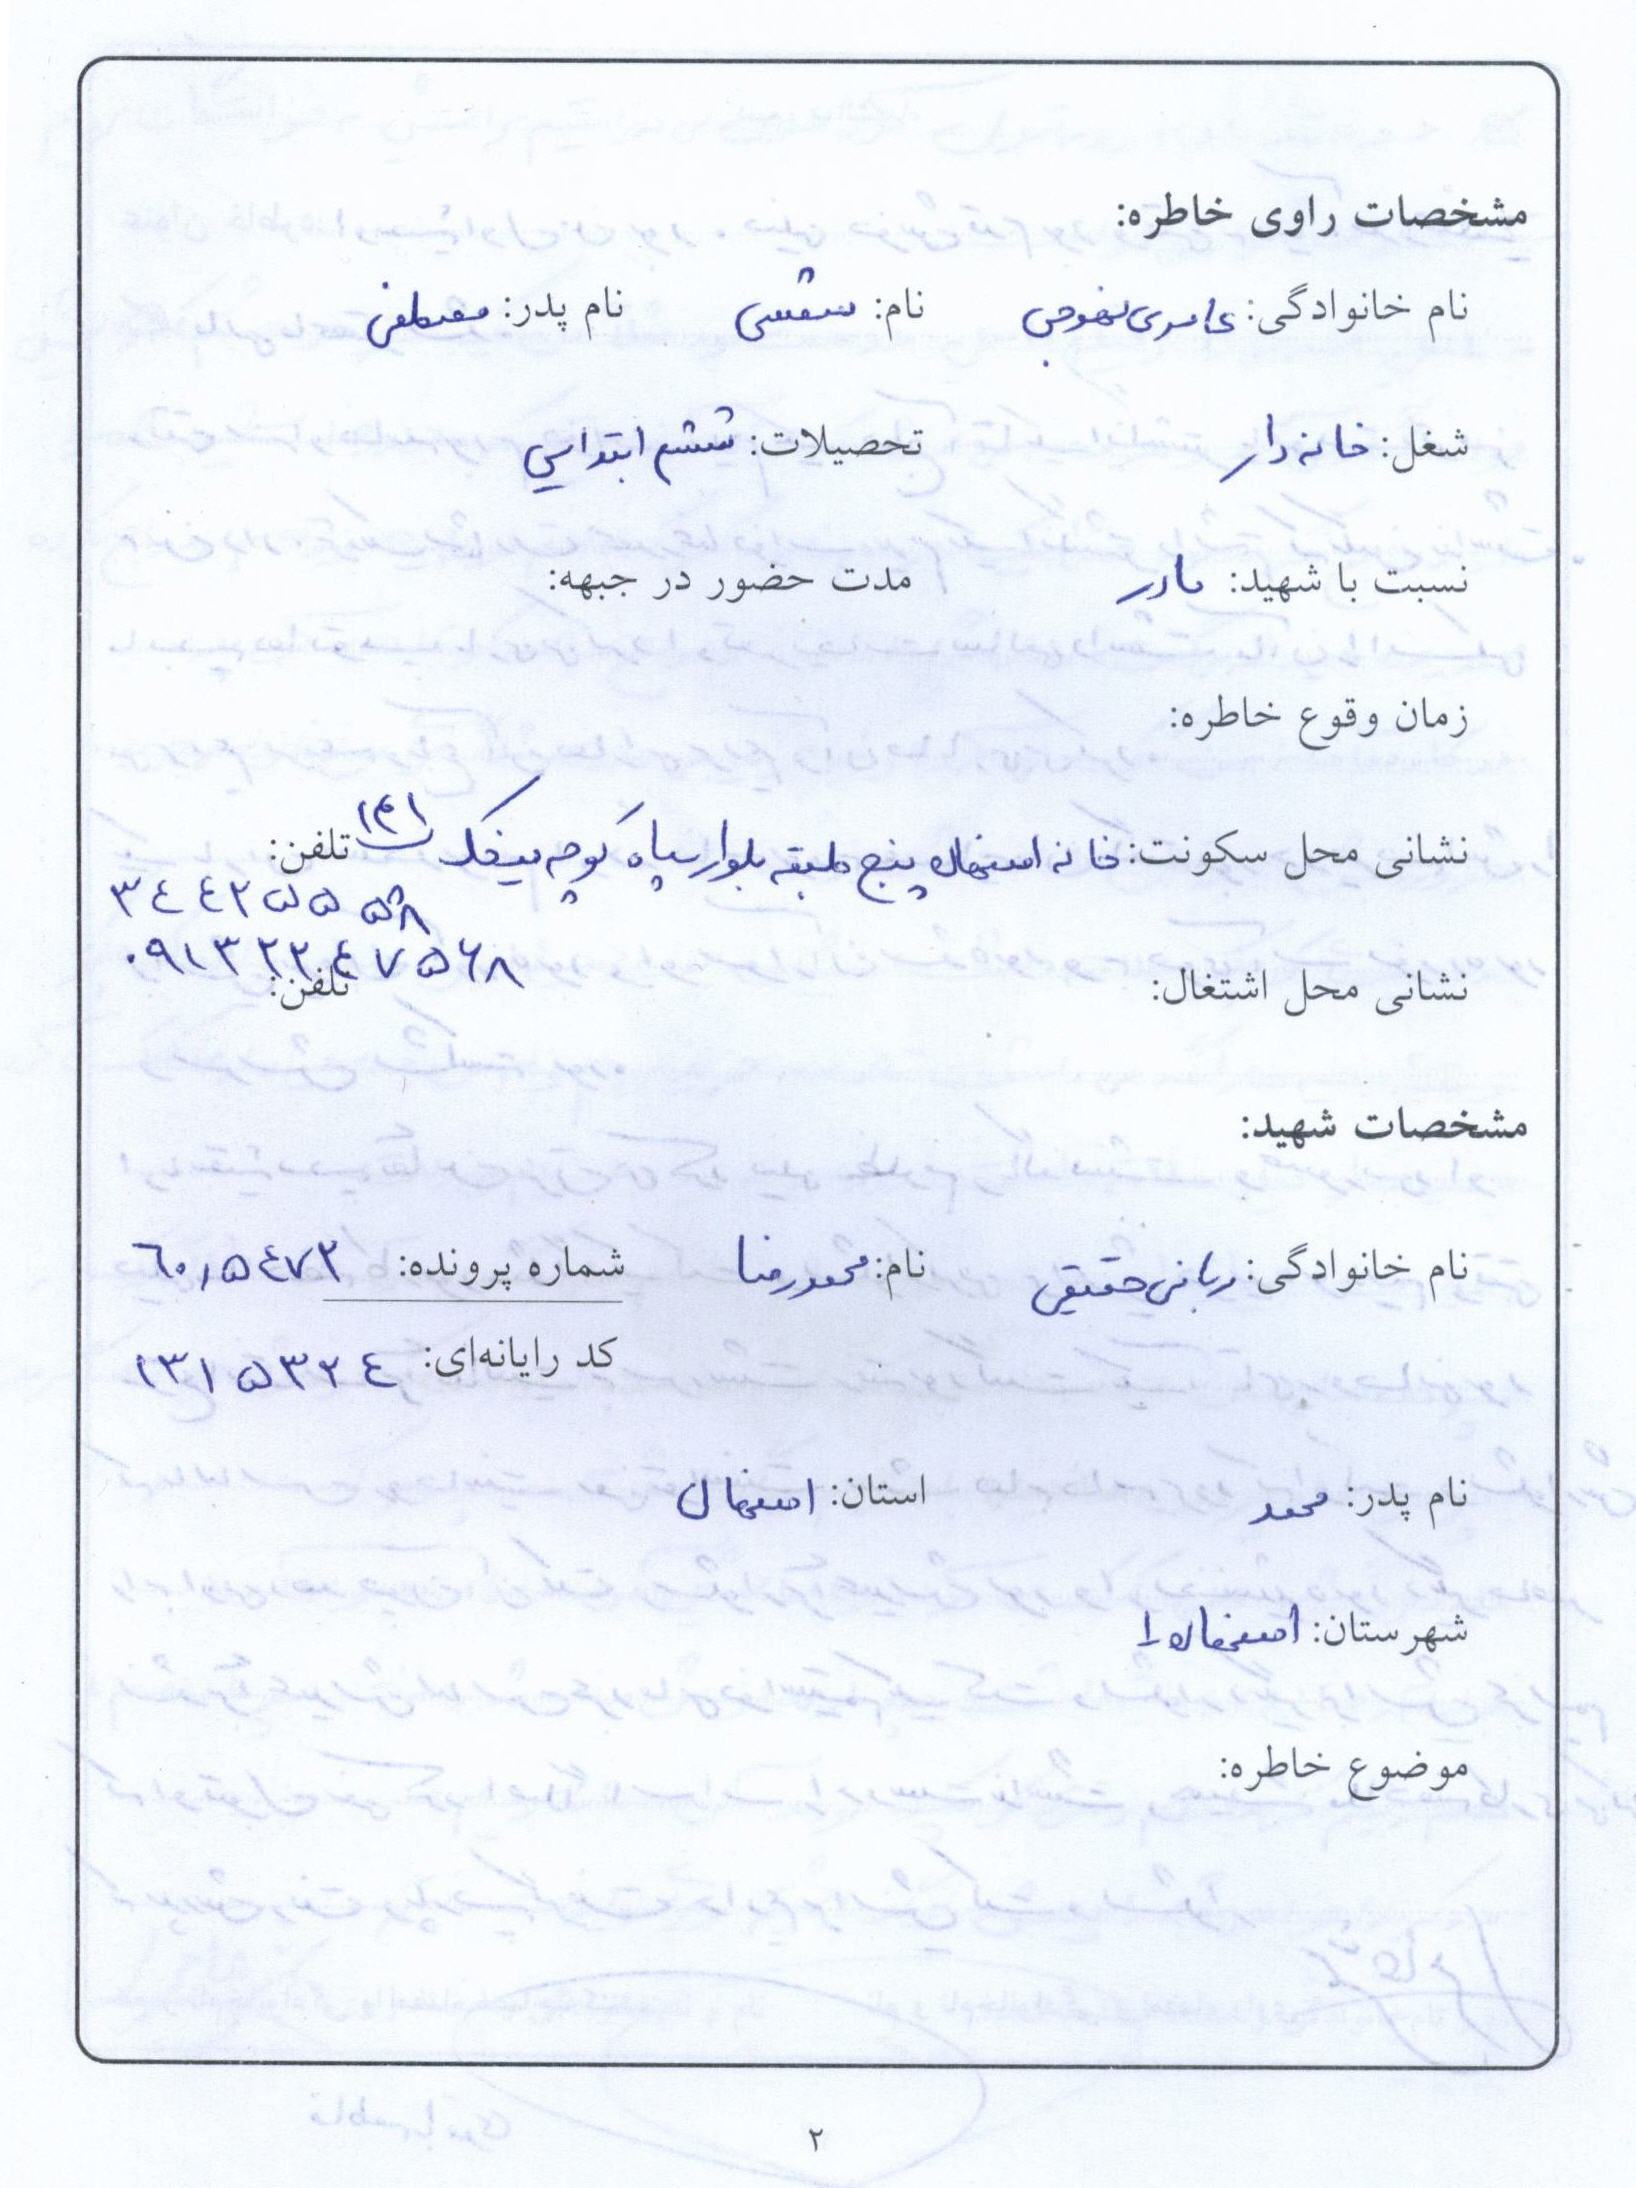 مشخصات راوی خاطره:
نام خانوادگی: عامری نام: شمسی نام پدر: مصطفی
شغل: خانه دار تحصیلات: ششم ابتدایی
نسبت با شهید: مادر مدت حضور در جبهه:
زمان وقوع خاطره:
نشانی محل سکونت: خانه اصفهان پنج طبقه بلوار سپاه کوچه میخک ۱۴۱ تلفن:
۳۴۴۲۵۵۵۸
۰۹۱۳۲۲۴۷۵۶۸
نشانی محل اشتغال: تلفن:
مشخصات شهید:
نام خانوادگی: ربانی حقیقی نام: محمدرضا شماره پرونده: ۶۰,۵۴۷۲
کد رایانه‌ای: ۱۳۱۵۳۲۴
نام پدر: محمد استان: اصفهان
شهرستان: اصفهان ۱
موضوع خاطره:
۲